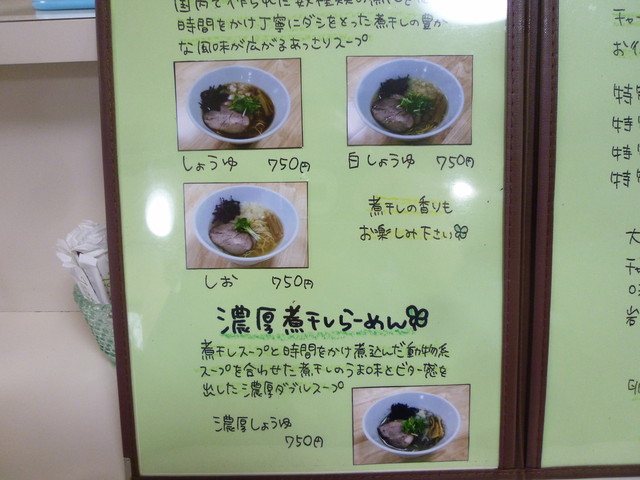 国内で作られた数種類の煮干を
時間をかけ丁寧にダシをとった煮干しの豊か
な風味が広がるあっさりスープ
しょうゆ 750円
白しょうゆ 750円
しお 750円
煮干しの香りも
お楽しみ下さい
濃厚煮干しらーめん
煮干しスープと時間をかけ煮込んだ動物系
スープを合わせた煮干しのうま味とビター感を
出した濃厚ダブルスープ
濃厚しょうゆ
750円
チャ
お
特
特
特
特
大
チャ
岩